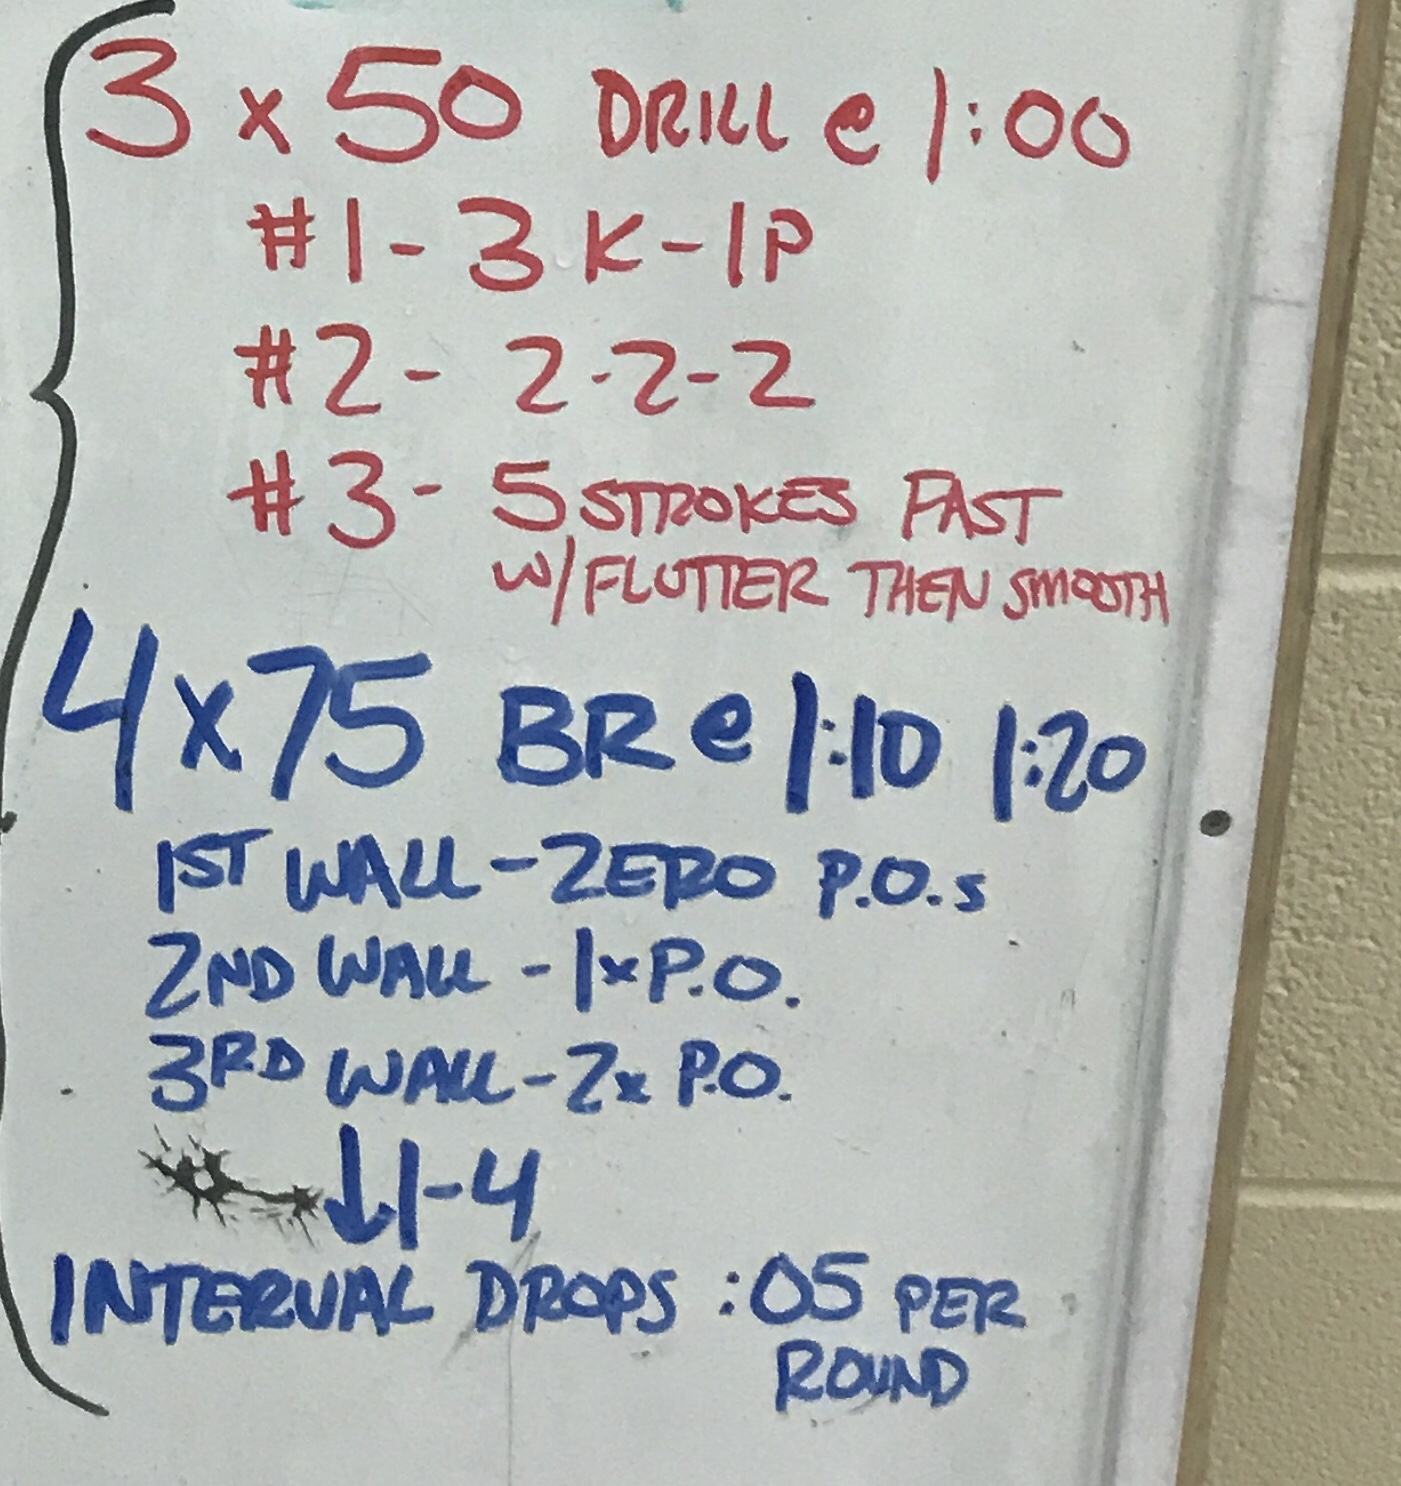 3 x 50 DRILL @ 1:00
#1 - 3K - 1P
#2 - 2-2-2
#3 - 5 STROKES FAST
W/FLUTTER THEN SMOOTH
4 x 75 BR @ 1:10 1:20
1ST WALL - ZERO P.O.s
2ND WALL - 1x P.O.
3RD WALL - 2x P.O.
↓1-4
INTERVAL DROPS :05 PER
ROUND